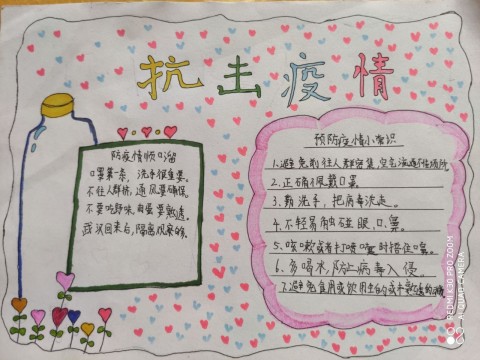 抗击疫情
防疫情顺口溜
口罩第一条，洗手很重要。
不往人群挤，通风要确保。
不要吃野味，肉蛋要熟透。
武汉回来后，隔离观察好。
预防疫情小常识
1.避免前往人群密集，空气流通不佳场所
2.正确佩戴口罩
3.勤洗手，把病毒洗走。
4.不轻易触碰眼、口、鼻。
5.咳嗽或者打喷嚏时捂住口鼻。
6.多喝水，防止病毒入侵。
7.避免食用或饮用生的或未熟透的
REDMI K30 PRO ZOOM
AI QUAD CAMERA